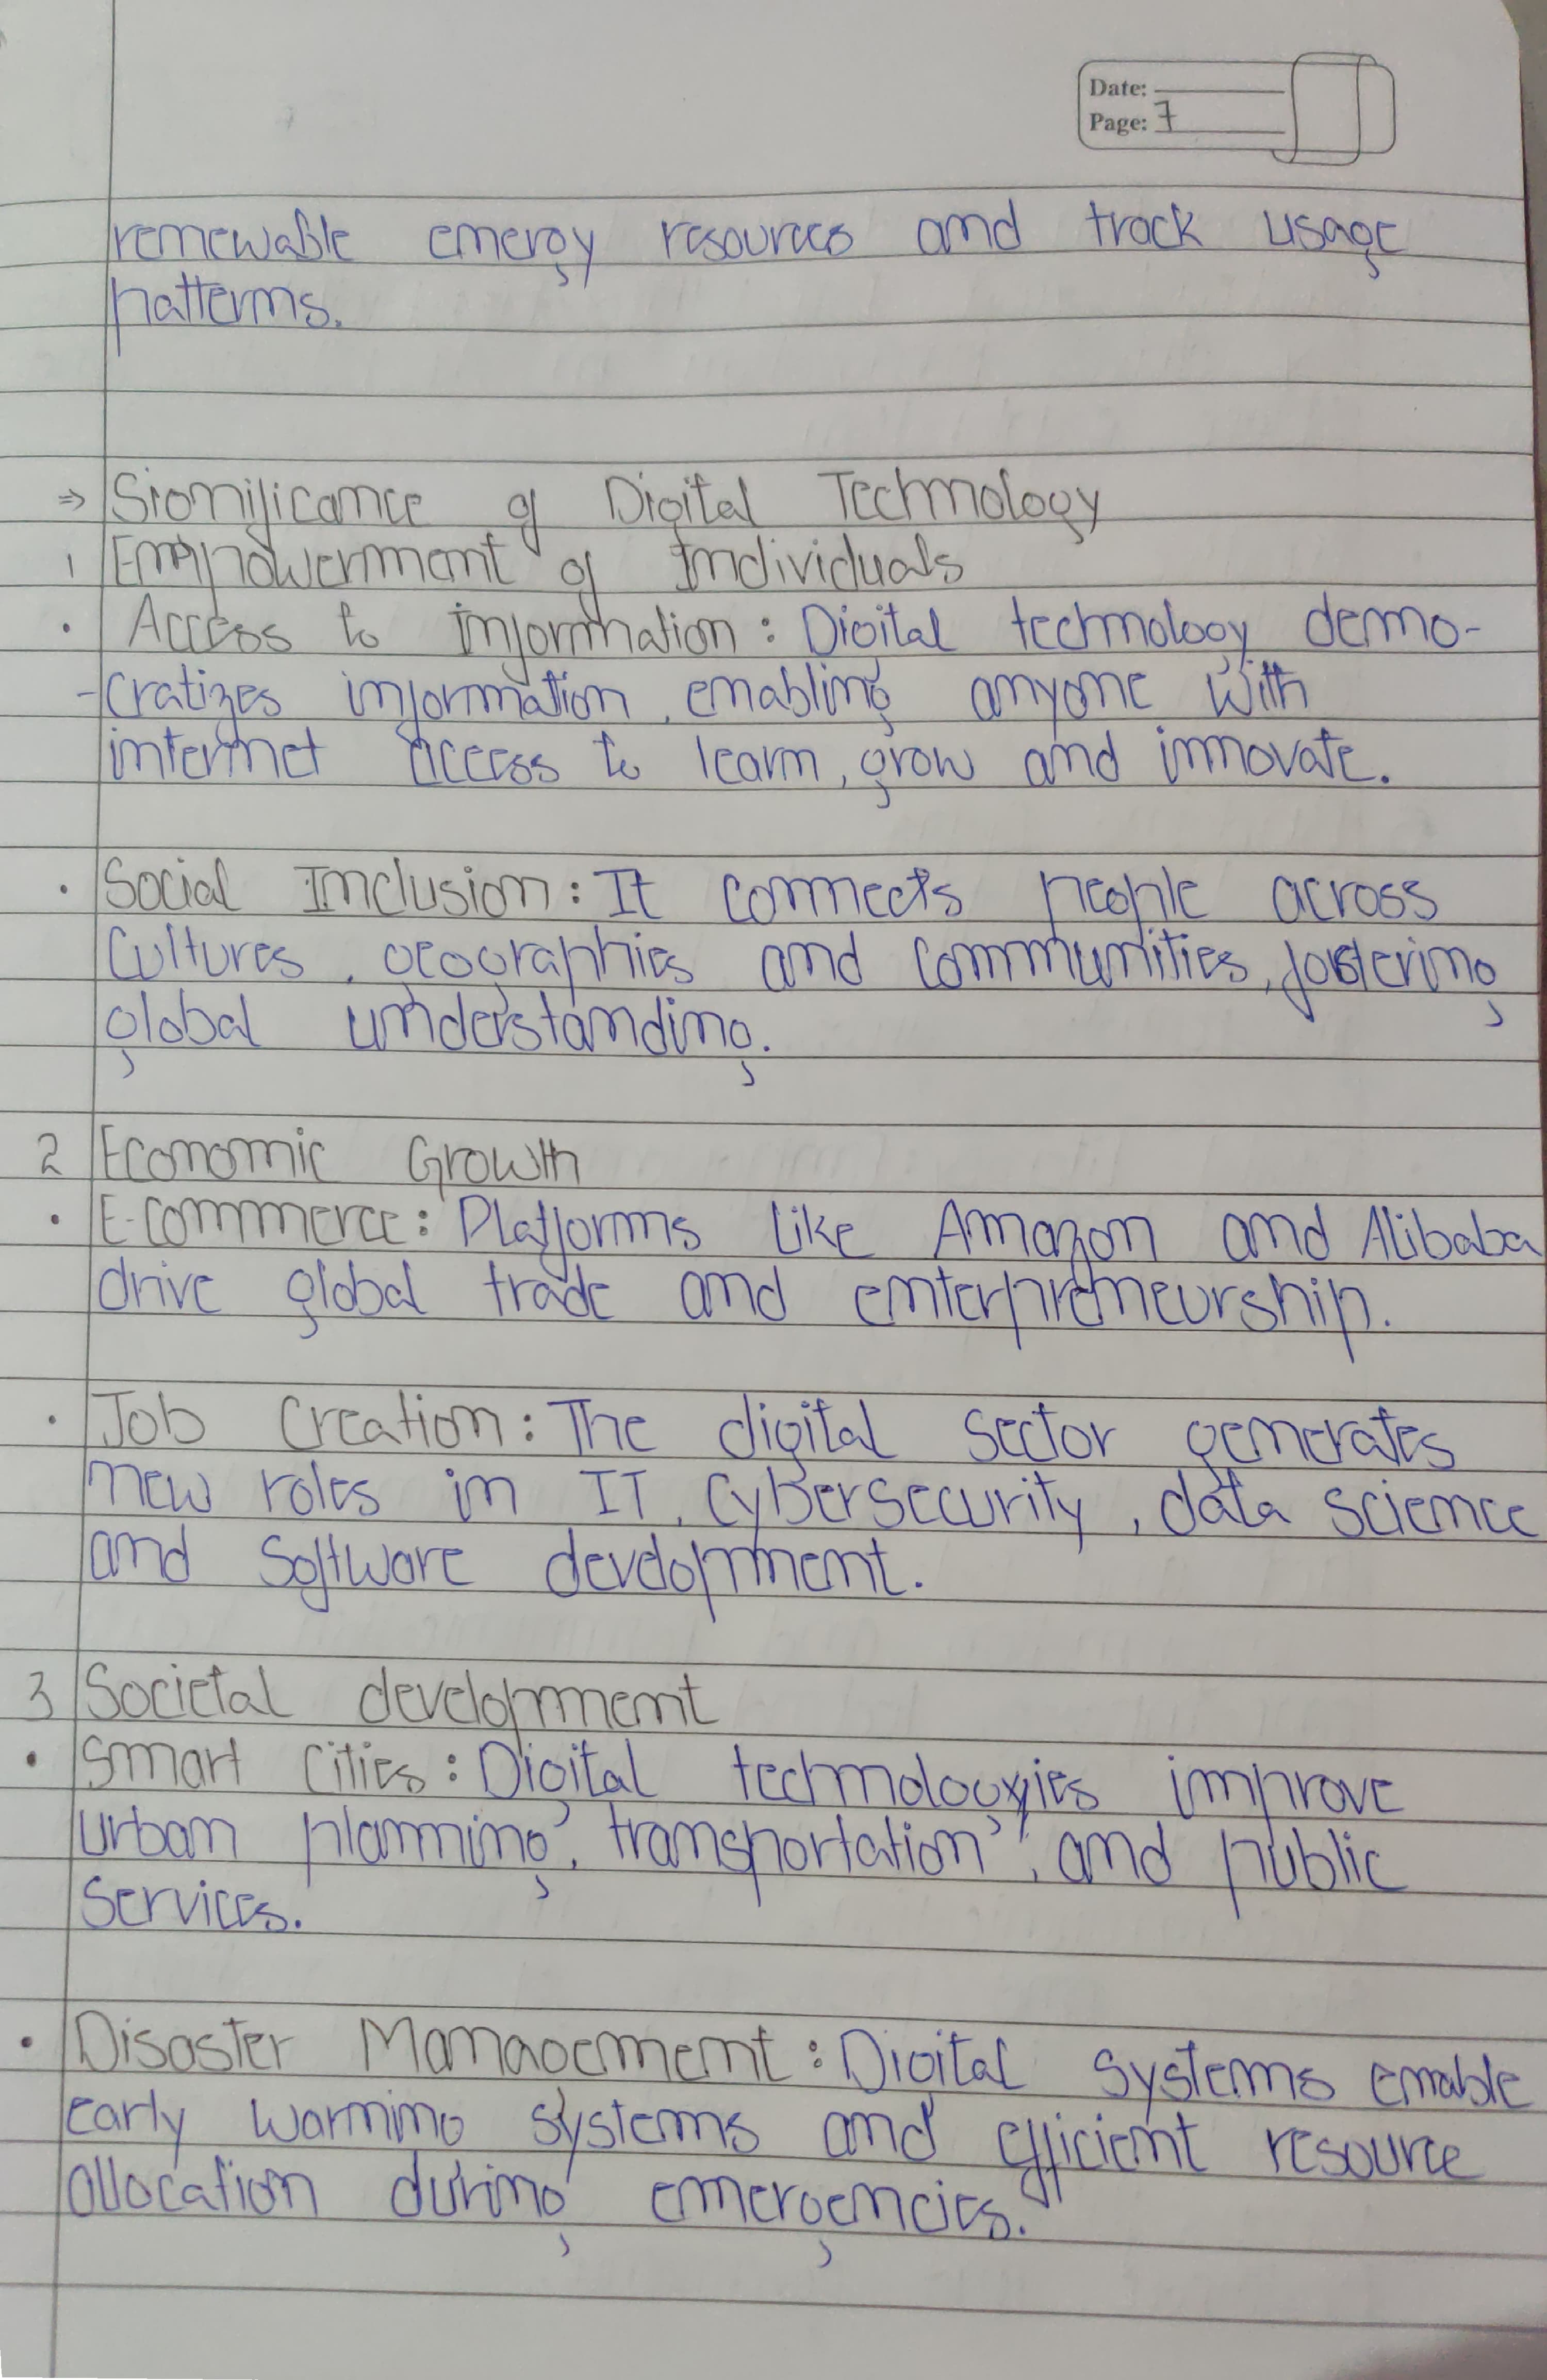 Date:
Page: 7
renewable energy resources and track usage
patterns.
⇒ Significance of Digital Technology
1 Empowerment of Individuals
• Access to Information : Digital technology demo-
-cratizes information, enabling anyone with
internet access to learn, grow and innovate.
• Social Inclusion : It connects people across
cultures, geographies and communities, fostering
global understanding.
2 Economic Growth
• E-commerce : Platforms like Amazon and Alibaba
drive global trade and enterpreneurship.
• Job Creation : The digital sector generates
new roles in IT, Cybersecurity, data science
and software development.
3 Societal development
• Smart Cities : Digital technologies improve
urban planning, transportation, and public
services.
• Disaster Management : Digital systems enable
early warning systems and efficient resource
allocation during emergencies.